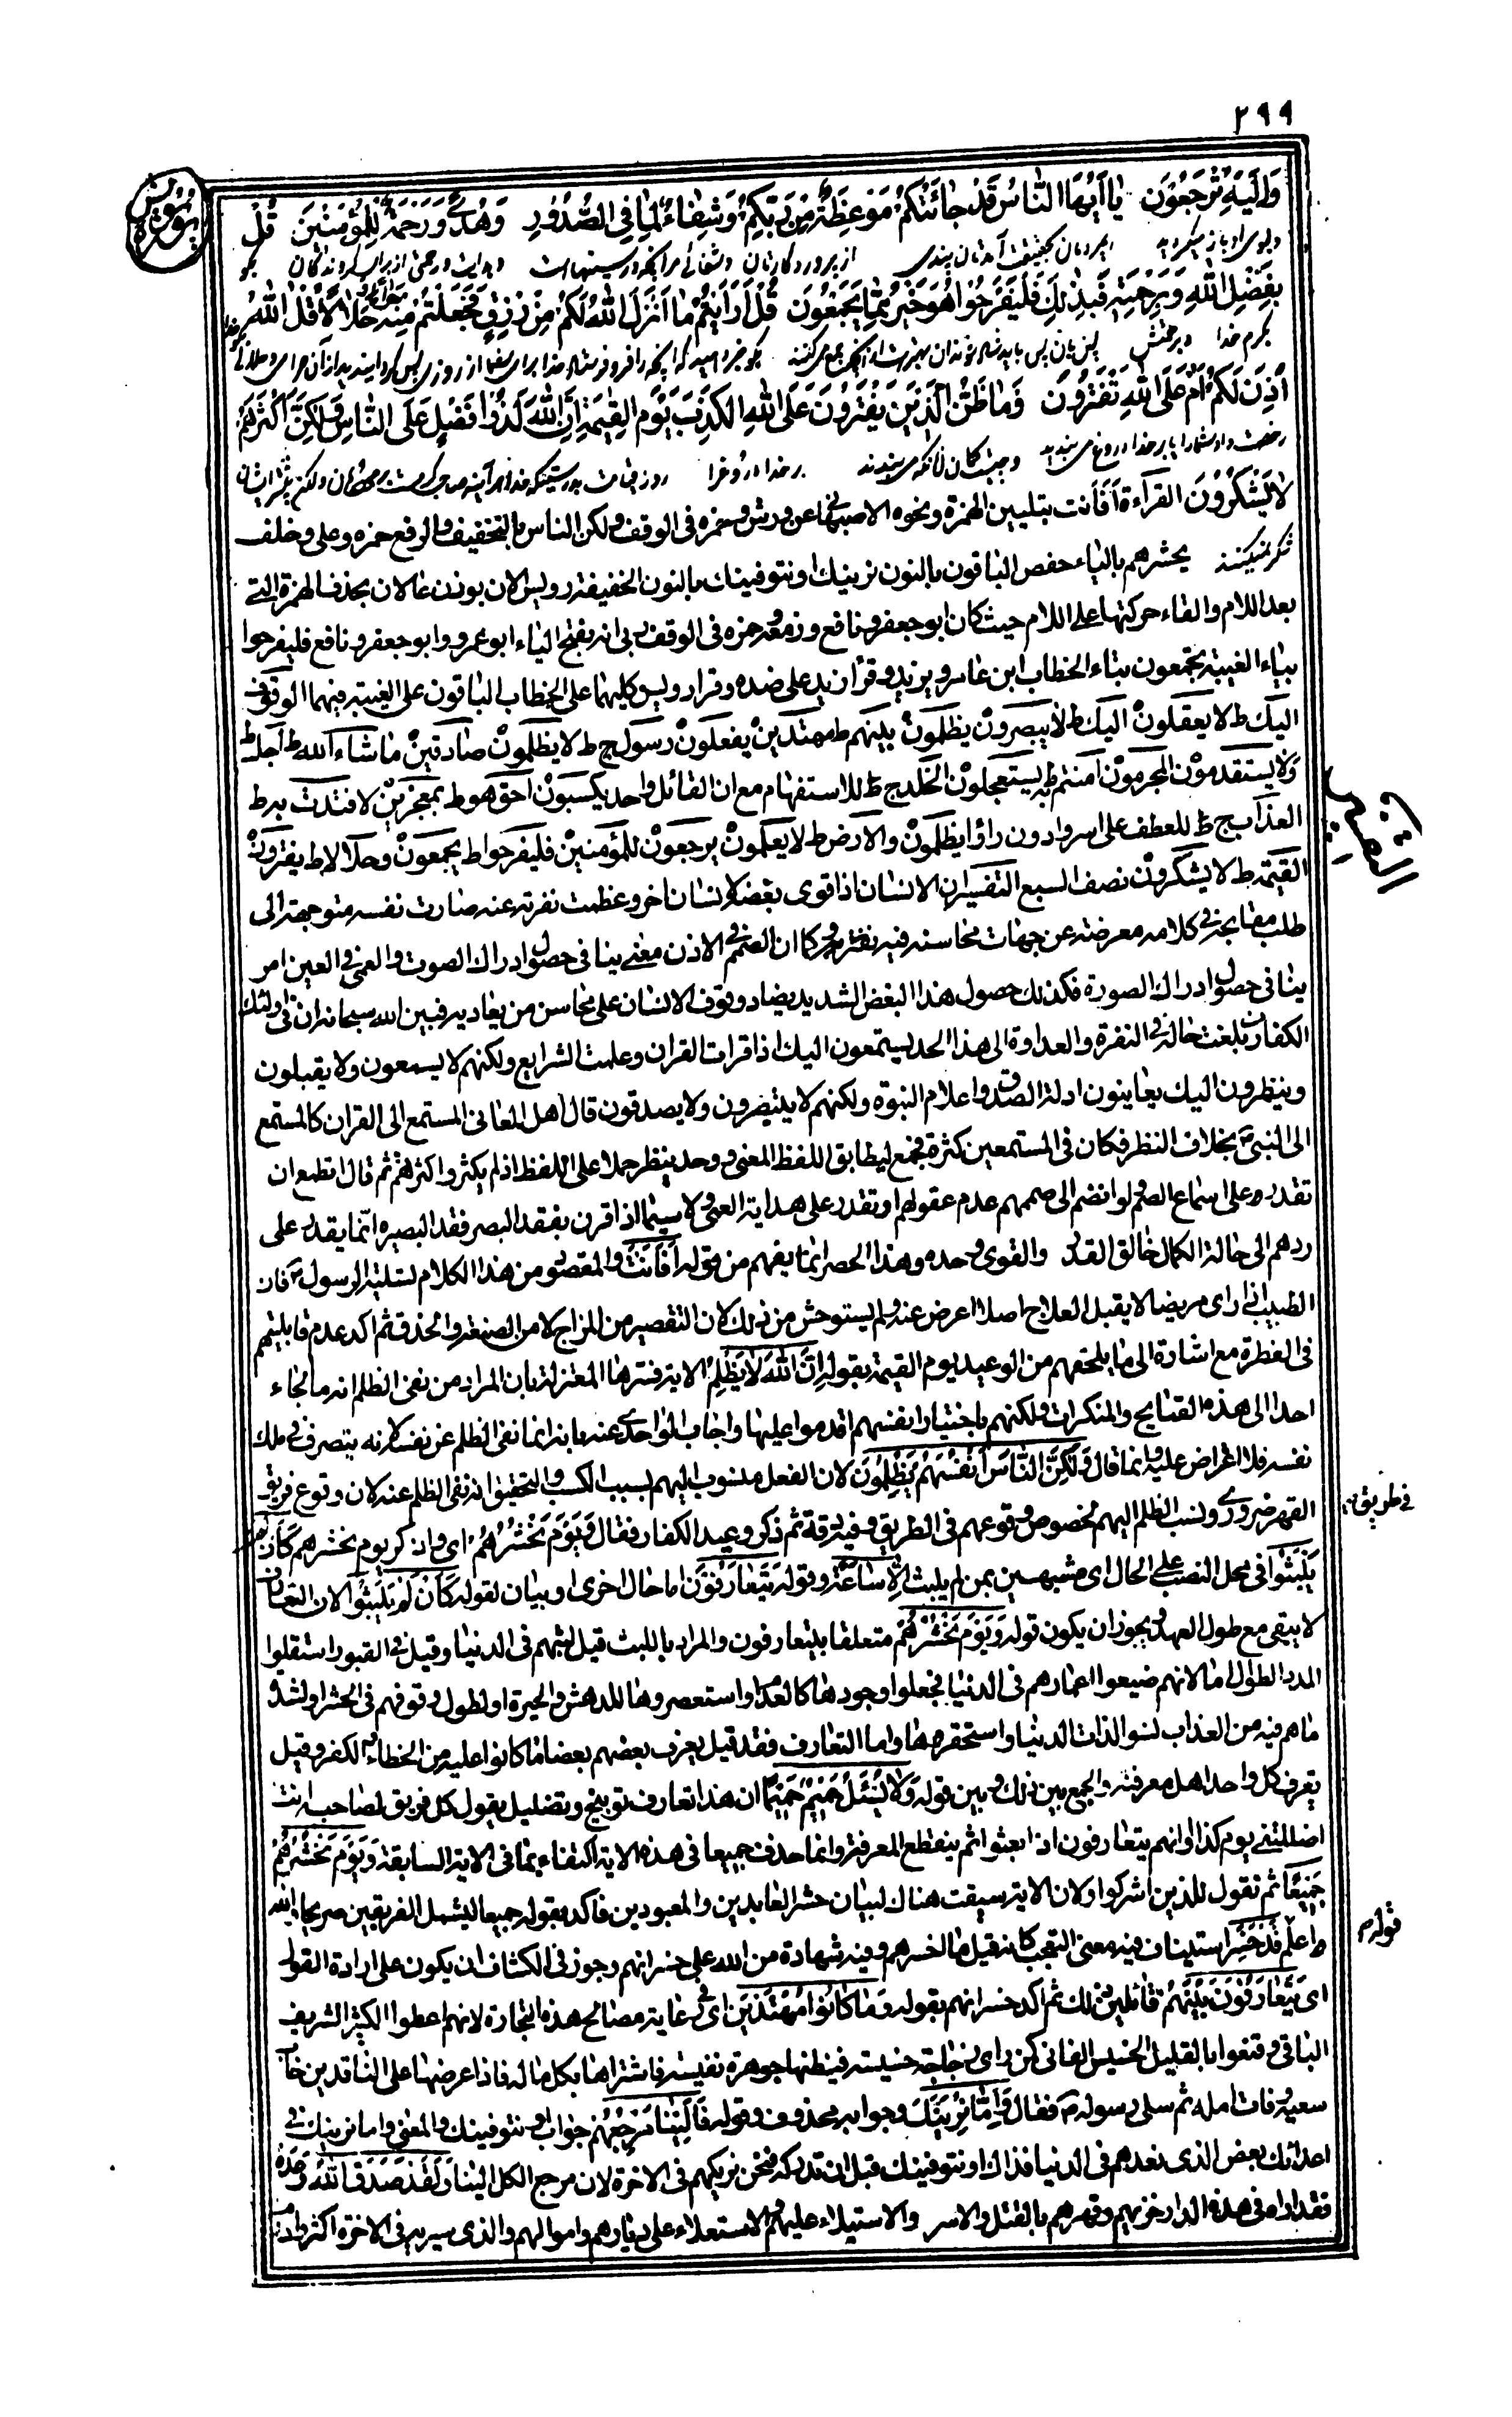 ٢٩٩
سورة يونس
وَإِلَيْهِ تُرْجَعُونَ يٰا أَيُّهَا النّٰاسُ قَدْ جٰائَتْكُمْ مَوْعِظَةٌ مِنْ رَبِّكُمْ وَشِفٰاءٌ لِمٰا فِي الصُّدُورِ وَهُدىً وَرَحْمَةٌ لِلْمُؤْمِنِينَ قُلْ
وبسوی او باز میگردید ای مردمان بحقیقت آمدتان پندی از پروردگارتان وشفائی مر آنچه در سینهاست وهدایت ورحمتی از برای گروندگان بگو
بِفَضْلِ اللهِ وَبِرَحْمَتِهِ فَبِذٰلِكَ فَلْيَفْرَحُوا هُوَ خَيْرٌ مِمّٰا يَجْمَعُونَ قُلْ أَرَأَيْتُمْ مٰا أَنْزَلَ اللهُ لَكُمْ مِنْ رِزْقٍ فَجَعَلْتُمْ مِنْهُ حَرٰاماً وَحَلٰالاً قُلْ اللهُ
بکرم خدا وبرحمتش پس بآن پس باید شاد شوند آن بهتر است از آنچه جمع می‌کنند بگو خبر دهید که آنچه را فرو فرستاد خدا برای شما از روزی پس گردانیدید از آن حرامی وحلالی بگو خدا
أَذِنَ لَكُمْ أَمْ عَلَى اللهِ تَفْتَرُونَ وَمٰا ظَنُّ الَّذِينَ يَفْتَرُونَ عَلَى اللهِ الْكَذِبَ يَوْمَ الْقِيٰمَةِ إِنَّ اللهَ لَذُو فَضْلٍ عَلَى النّٰاسِ وَلٰكِنَّ أَكْثَرَهُمْ
رخصت داد شما را یا بر خدا دروغ می‌بندید وچیست گمان آنانکه می‌بندند بر خدا دروغ را روز قیامت بدرستیکه خدا هر آینه صاحب کرمست بر مردمان ولکن بیشترایشان
لٰا يَشْكُرُونَ القرآءة أفأنت بتليين الهمزة ونحوه الاصبهانى عن ورش وحمزه فى الوقف ولكن الناس بالتخفيف والرفع حمزه وعلى وخلف
شکر نمیکنند يحشرهم بالياء حفص الباقون بالنون نرينك ونتوفينك بالنون الخفيفة رويس الان بوزن عالان بحذف الهمزة التى
بعد اللام والقاء حركتها على اللام حيث كان ابو جعفر ونافع وزمعه وحمزه فى الوقف ربى انه بفتح الياء ابو عمرو وابو جعفر ونافع فليفرحوا
بياء الغيبة تجمعون بتاء الخطاب ابن عامر ويزيد وقرأ زيد على ضده وقرا رويس كليهما على الخطاب الباقون على الغيبة فيهما الوقوف
اليك ط لا يعقلون اليك ط لا يبصرون يظلمون بينهم ط مهتدين يفعلون رسول ج ط لا يظلمون صادقين ما شاء الله ط اجل ط
ولا يستقدمون المجرمون آمنتم به ط يستعجلون الخلد ج ط للاستفهام مع ان القائل واحد يكسبون احق هو ط بمعجزين لافتدت به ط
العذاب ج ط للعطف على اسروا دون راوا يظلمون والارض ط لا يعلمون يرجعون للمؤمنين فليفرحوا ط يجمعون وحلالا ط يفترون
القيمة ط لا يشكرون نصف السبع التفسير ان الانسان اذا قوى بغضه لانسان اخر وعظمت نفرته عنه صارت نفسه متوجهة الى
التفسير
طلب مقابحه فى كلامه معرضة عن جهات محاسنه فيه وكما ان الصمم فى الاذن معنى ينافى حصول ادراك الصوت والعمى فى العين امر
ينافى حصول ادراك الصورة فكذلك حصول هذا البغض الشديد يضاد وقوف الانسان على محاسن من يعاديه فبين الله سبحانه ان فى اولئك
الكفار من بلغت حاله فى النفرة والعداوة الى هذا الحد يستمعون اليك اذا قرات القران وعلمت الشرايع ولكنهم لا يسمعون ولا يقبلون
وينظرون اليك يعاينون ادلة الصدق واعلام النبوة ولكنهم لا يبصرون ولا يصدقون قال اهل المعانى المستمع الى القران كالمستمع
الى النبى بخلاف النظر فكان فى المستمعين كثرة فجمع ليطابق اللفظ المعنى ووحد ينظر حملا على اللفظ اذ لم يكثروا كثرتهم ثم قال اتطمع ان
تقدر على اسماع الصم ولو انضم الى صممهم عدم عقولهم او تقدر على هداية العمى ولا سيما اذا قرن بفقد البصر فقد البصيره انما يقدر على
ردهم الى حالة الكمال خالق القدر والقوى وحده وهذا الحصر انما يفهم من قوله أَفَأَنْتَ والمقصود من هذا الكلام تسلية الرسول فان
الطبيب اذا راى مريضا لا يقبل العلاج اصلا اعرض عنه ولم يستوحش من ذلك لان التقصير من المزاج لا من الصنعة والحذق ثم اكد عدم قابليتهم
فى الفطرة مع اشارة الى ما يلحقهم من الوعيد يوم القيمة بقوله إِنَّ اللهَ لٰا يَظْلِمُ الاية فسرها المعتزلة بان المراد من نفى الظلم انه ما الجاء
احدا الى هذه القبايح والمنكرات ولكنهم باختيار انفسهم اقدموا عليها واجاب الواحدى عنه بانه انما نفى الظلم عن نفسه لانه يتصرف فى ملك
نفسه فلا اعتراض عليه وانما قال وَلٰكِنَّ النّٰاسَ أَنْفُسَهُمْ يَظْلِمُونَ لان الفعل منسوب اليهم بسبب الكسب والتحقيق انه نفى الظلم عنه لان وقوع فريق
فى طريق
القهر ضرورى ونسب الظلم اليهم لخصوص وقوعهم فى الطريق وفيه دقة ثم ذكر وعيد الكفار فقال وَيَوْمَ نَحْشُرُهُمْ اى واذكر يوم نحشرهم كَأَنْ لَمْ
يَلْبَثُوا فى محل النصب على الحال اى مشبهين بمن لم يلبث إِلّٰا سٰاعَةً وقوله يَتَعٰارَفُونَ اما حال اخرى او بيان لقوله كَأَنْ لَمْ يَلْبَثُوا لان التعارف
لا يبقى مع طول العهد ويجوز ان يكون قوله وَيَوْمَ نَحْشُرُهُمْ متعلقا بيتعارفون والمراد باللبث قيل لبثهم فى الدنيا وقيل فى القبور استقلوا
المدد الطوال اما لانهم ضيعوا اعمارهم فى الدنيا فجعلوا وجودها كالعدم او استقصروها للدهش والحيرة او لطول وقوفهم فى الحشر او لشدة
ما هم فيه من العذاب نسوا لذات الدنيا واستحقروها واما التعارف فقد قيل يعرف بعضهم بعضا ما كانوا عليه من الخطاء والكفر وقيل
يعرف كل واحد اهل معرفته والجمع بين ذلك وبين قوله وَلٰا يَسْئَلُ حَمِيمٌ حَمِيماً ان هذا تعارف توبيخ وتضليل يقول كل فريق لصاحبه انت
اضللتنى يوم كذا او انهم يتعارفون اذا بعثوا ثم ينقطع المعرفة وانما حذف جميعا فى هذه الاية اكتفاء بما فى الاية السابقة وَيَوْمَ نَحْشُرُهُمْ
جَمِيعاً ثم نقول للذين اشركوا ولان الاية سيقت هناك لبيان حشر العابدين والمعبودين فاكد بقوله جميعا ليشمل الفريقين صريحا
قوله
واعلم قَدْ خَسِرَ استيناف فيه معنى التعجب كانه قيل ما اخسرهم وفيه شهادة من الله على خسرانهم وجوز فى الكشاف ان يكون على ارادة القول
اى يَتَعٰارَفُونَ بَيْنَهُمْ قائلين ذلك ثم اكد خسرانهم بقوله وَمٰا كٰانُوا مُهْتَدِينَ اى فى رعاية مصالح هذه التجارة لانهم اعطوا الكثير الشريف
الباقى وقنعوا بالقليل الخسيس الفانى كمن راى زجاجة خسيسه فيظنها جوهرة نفيسه فاشتراها بكل ماله فاذا عرضها على الناقدين خاب
سعيه وفات امله ثم سلى رسوله فقال وَإِمّٰا نُرِيَنَّكَ وجوابه محذوف وقوله فَإِلَيْنٰا مَرْجِعُهُمْ جواب او نتوفينك والمعنى واما نرينك فى
اعدائك بعض الذى نعدهم فى الدنيا فذاك او نتوفينك قبل ان تدركه فنحن نريكهم فى الاخرة لان مرجع الكل الينا وَلَقَدْ صَدَقَ اللهُ وَعْدَهُ
فقد اراه فى هذه الدار خزيهم وقهرهم بالقتل والاسر والاستيلاء عليهم والاستعلاء على ديارهم واموالهم والذى سيريه فى الاخرة اكثر وادوم